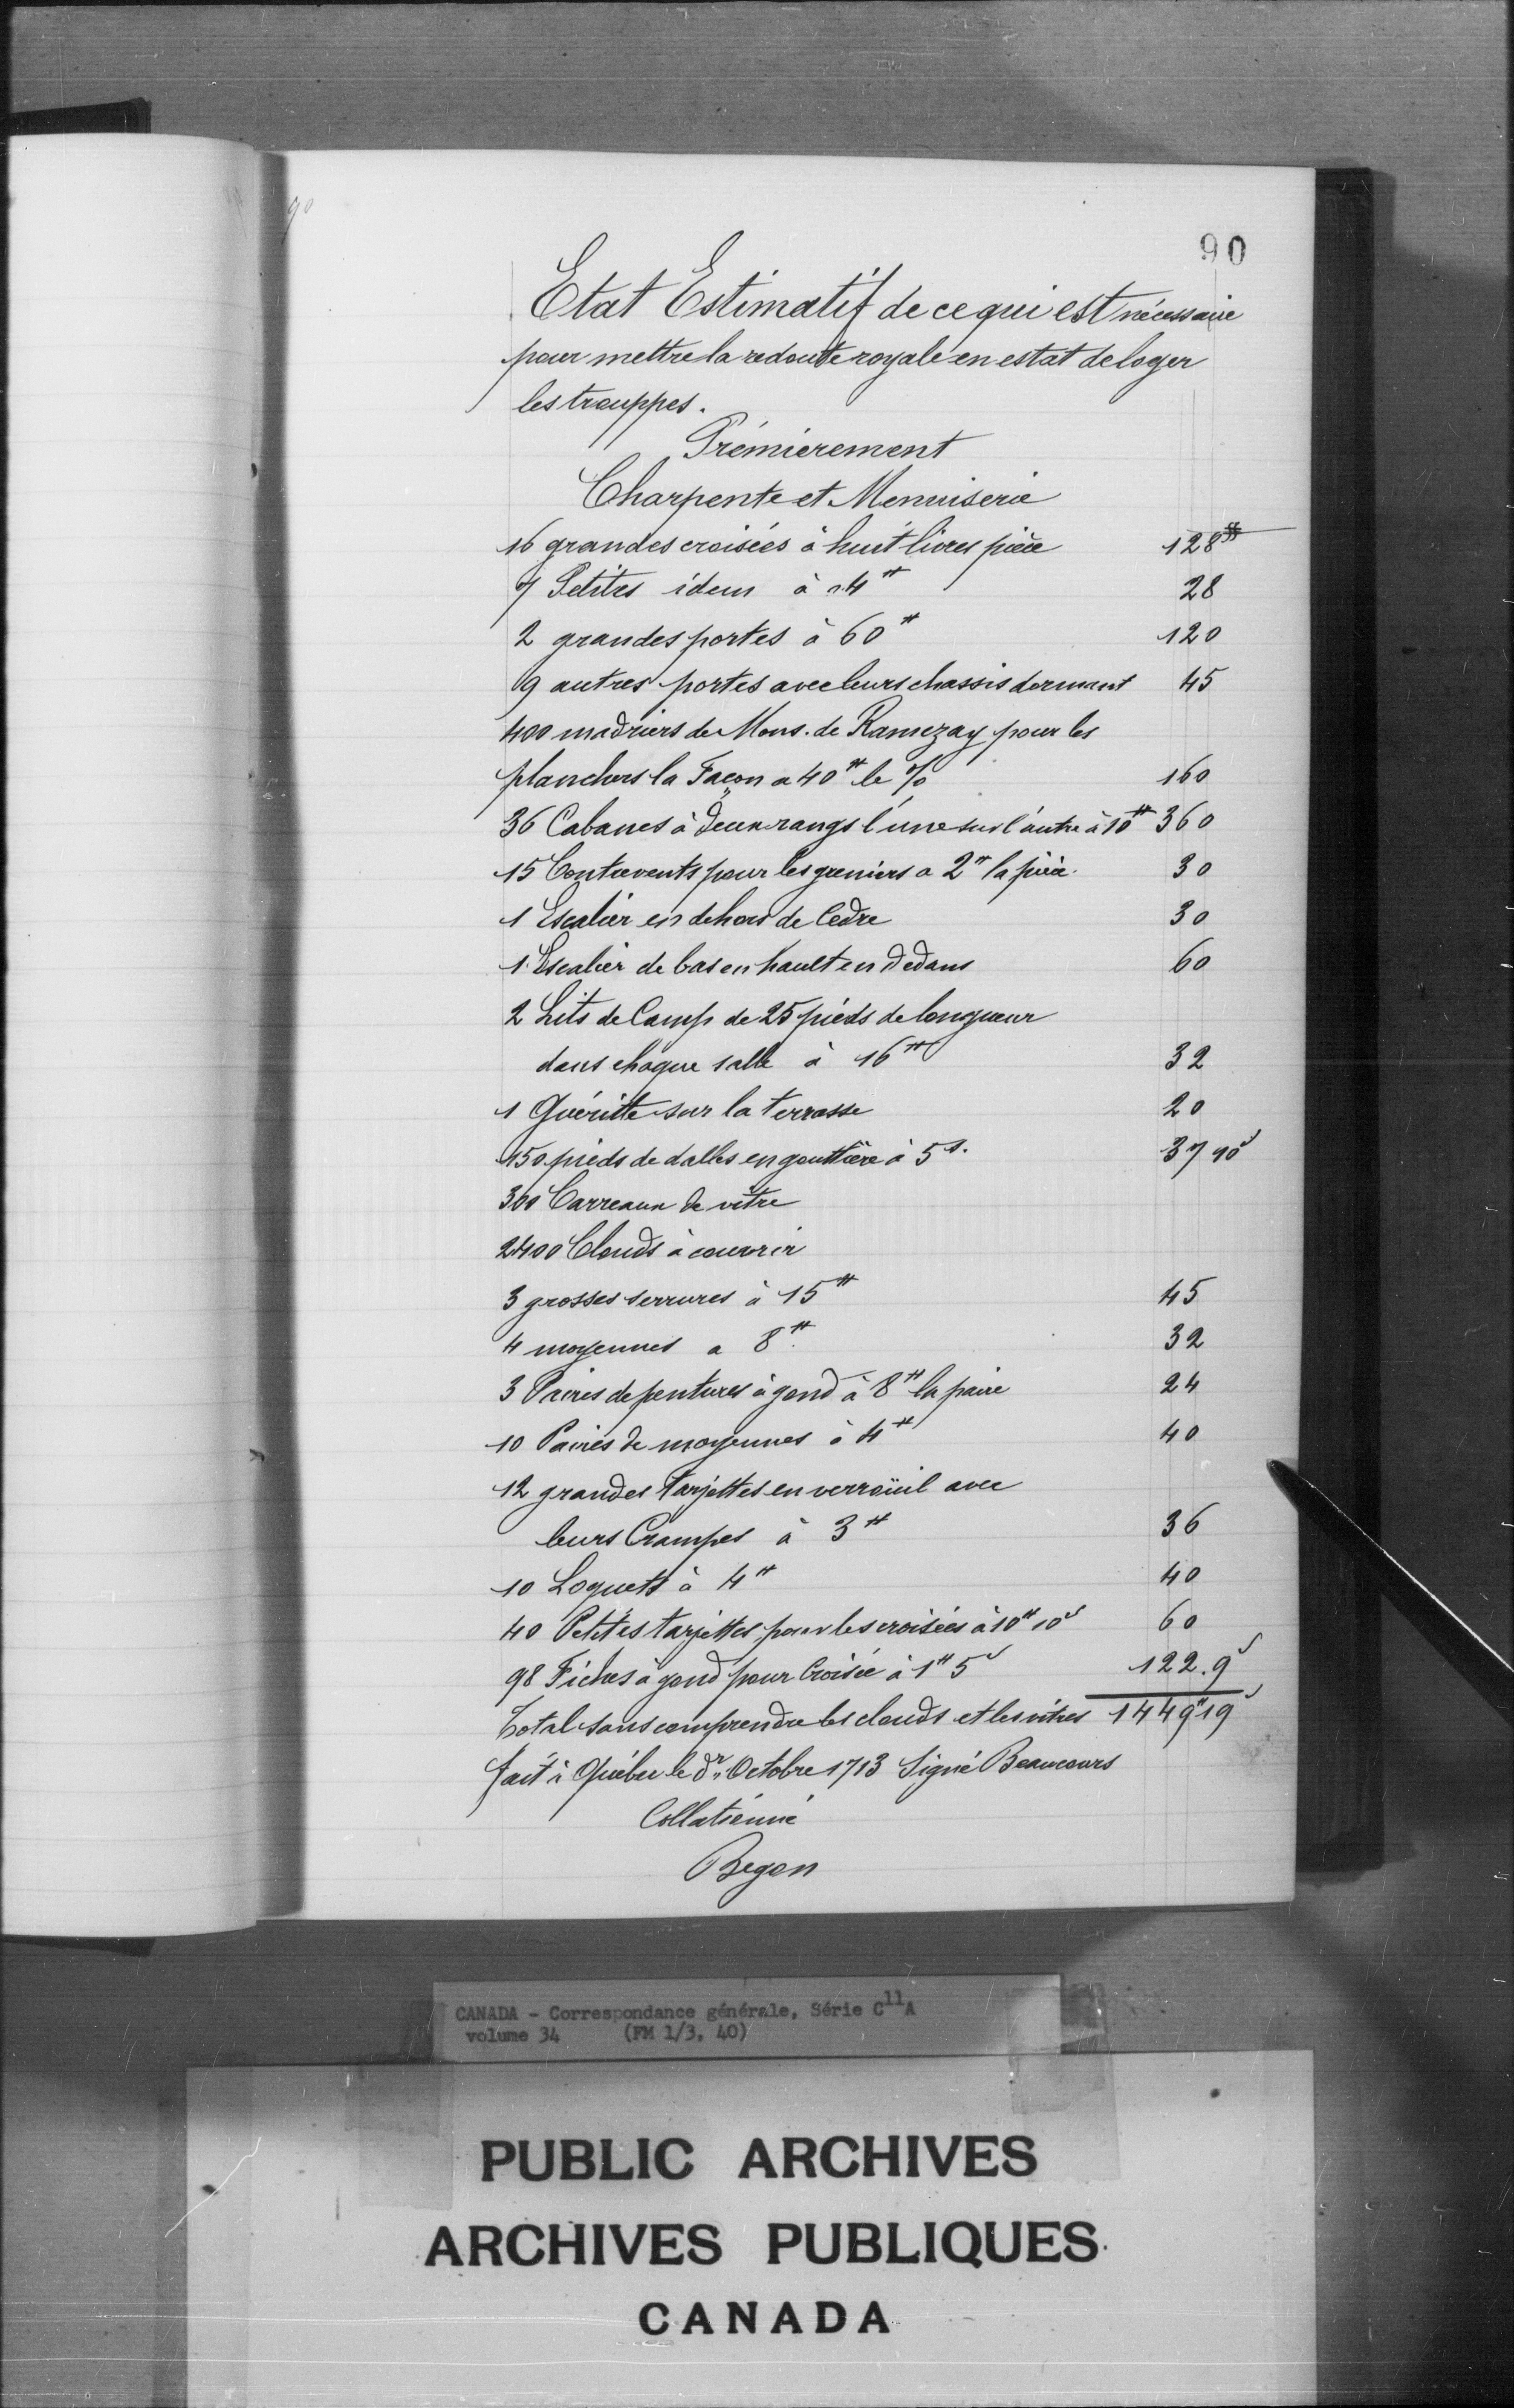 90
90
Etat Estimatif de ce qui est nécessaire
pour mettre la redoute royale en estat de loger
les trouppes.
Prémièrement
Charpente et Menuiserie
16 grandes croisées à huit livres pièce 128#
7 Petites idem à 4# 28
2 grandes portes à 60# 120
9 autres portes avec leurs chassis dormant 45
400 madriers de Mons. de Ramezay pour les
planchers la Façon a 40# le % 160
36 Cabanes à deux rangs l'une sur l'autre à 10# 360
15 Contrevents pour les greniers a 2# la pièce 30
1 Escalier en dehors de Cedre 30
1 Escalier de bas en hault en dedans 60
2 Lits de Camp de 25 pieds de longueur
dans chaque salle à 16# 32
1 Guéritte sur la terrasse 20
150 pieds de dalles en gouttière à 5s. 37 10s
300 Carreaux de vitre
2400 Clouds à couvrir
3 grosses serrures à 15# 45
4 moyennes a 8# 32
3 Paires de pentures à gond à 8# la paire 24
10 Paires de moyennes à 4# 40
12 grandes Tarjettes en verroüil avec
leurs Crampes à 3# 36
10 Loquets à 4# 40
40 Petites tarjettes pour les croisées à 10# 10s 60
98 Fiches à gond pour Croisée à 1# 5s 122.9s
Total sans comprendre les clouds et les vitres 1449# 19s
fait à Québec le dr. Octobre 1713 Signé Beaucours
Collationné
Begon
CANADA - Correspondance générale, Série C11A
volume 34 (FM 1/3, 40)
PUBLIC ARCHIVES
ARCHIVES PUBLIQUES
CANADA